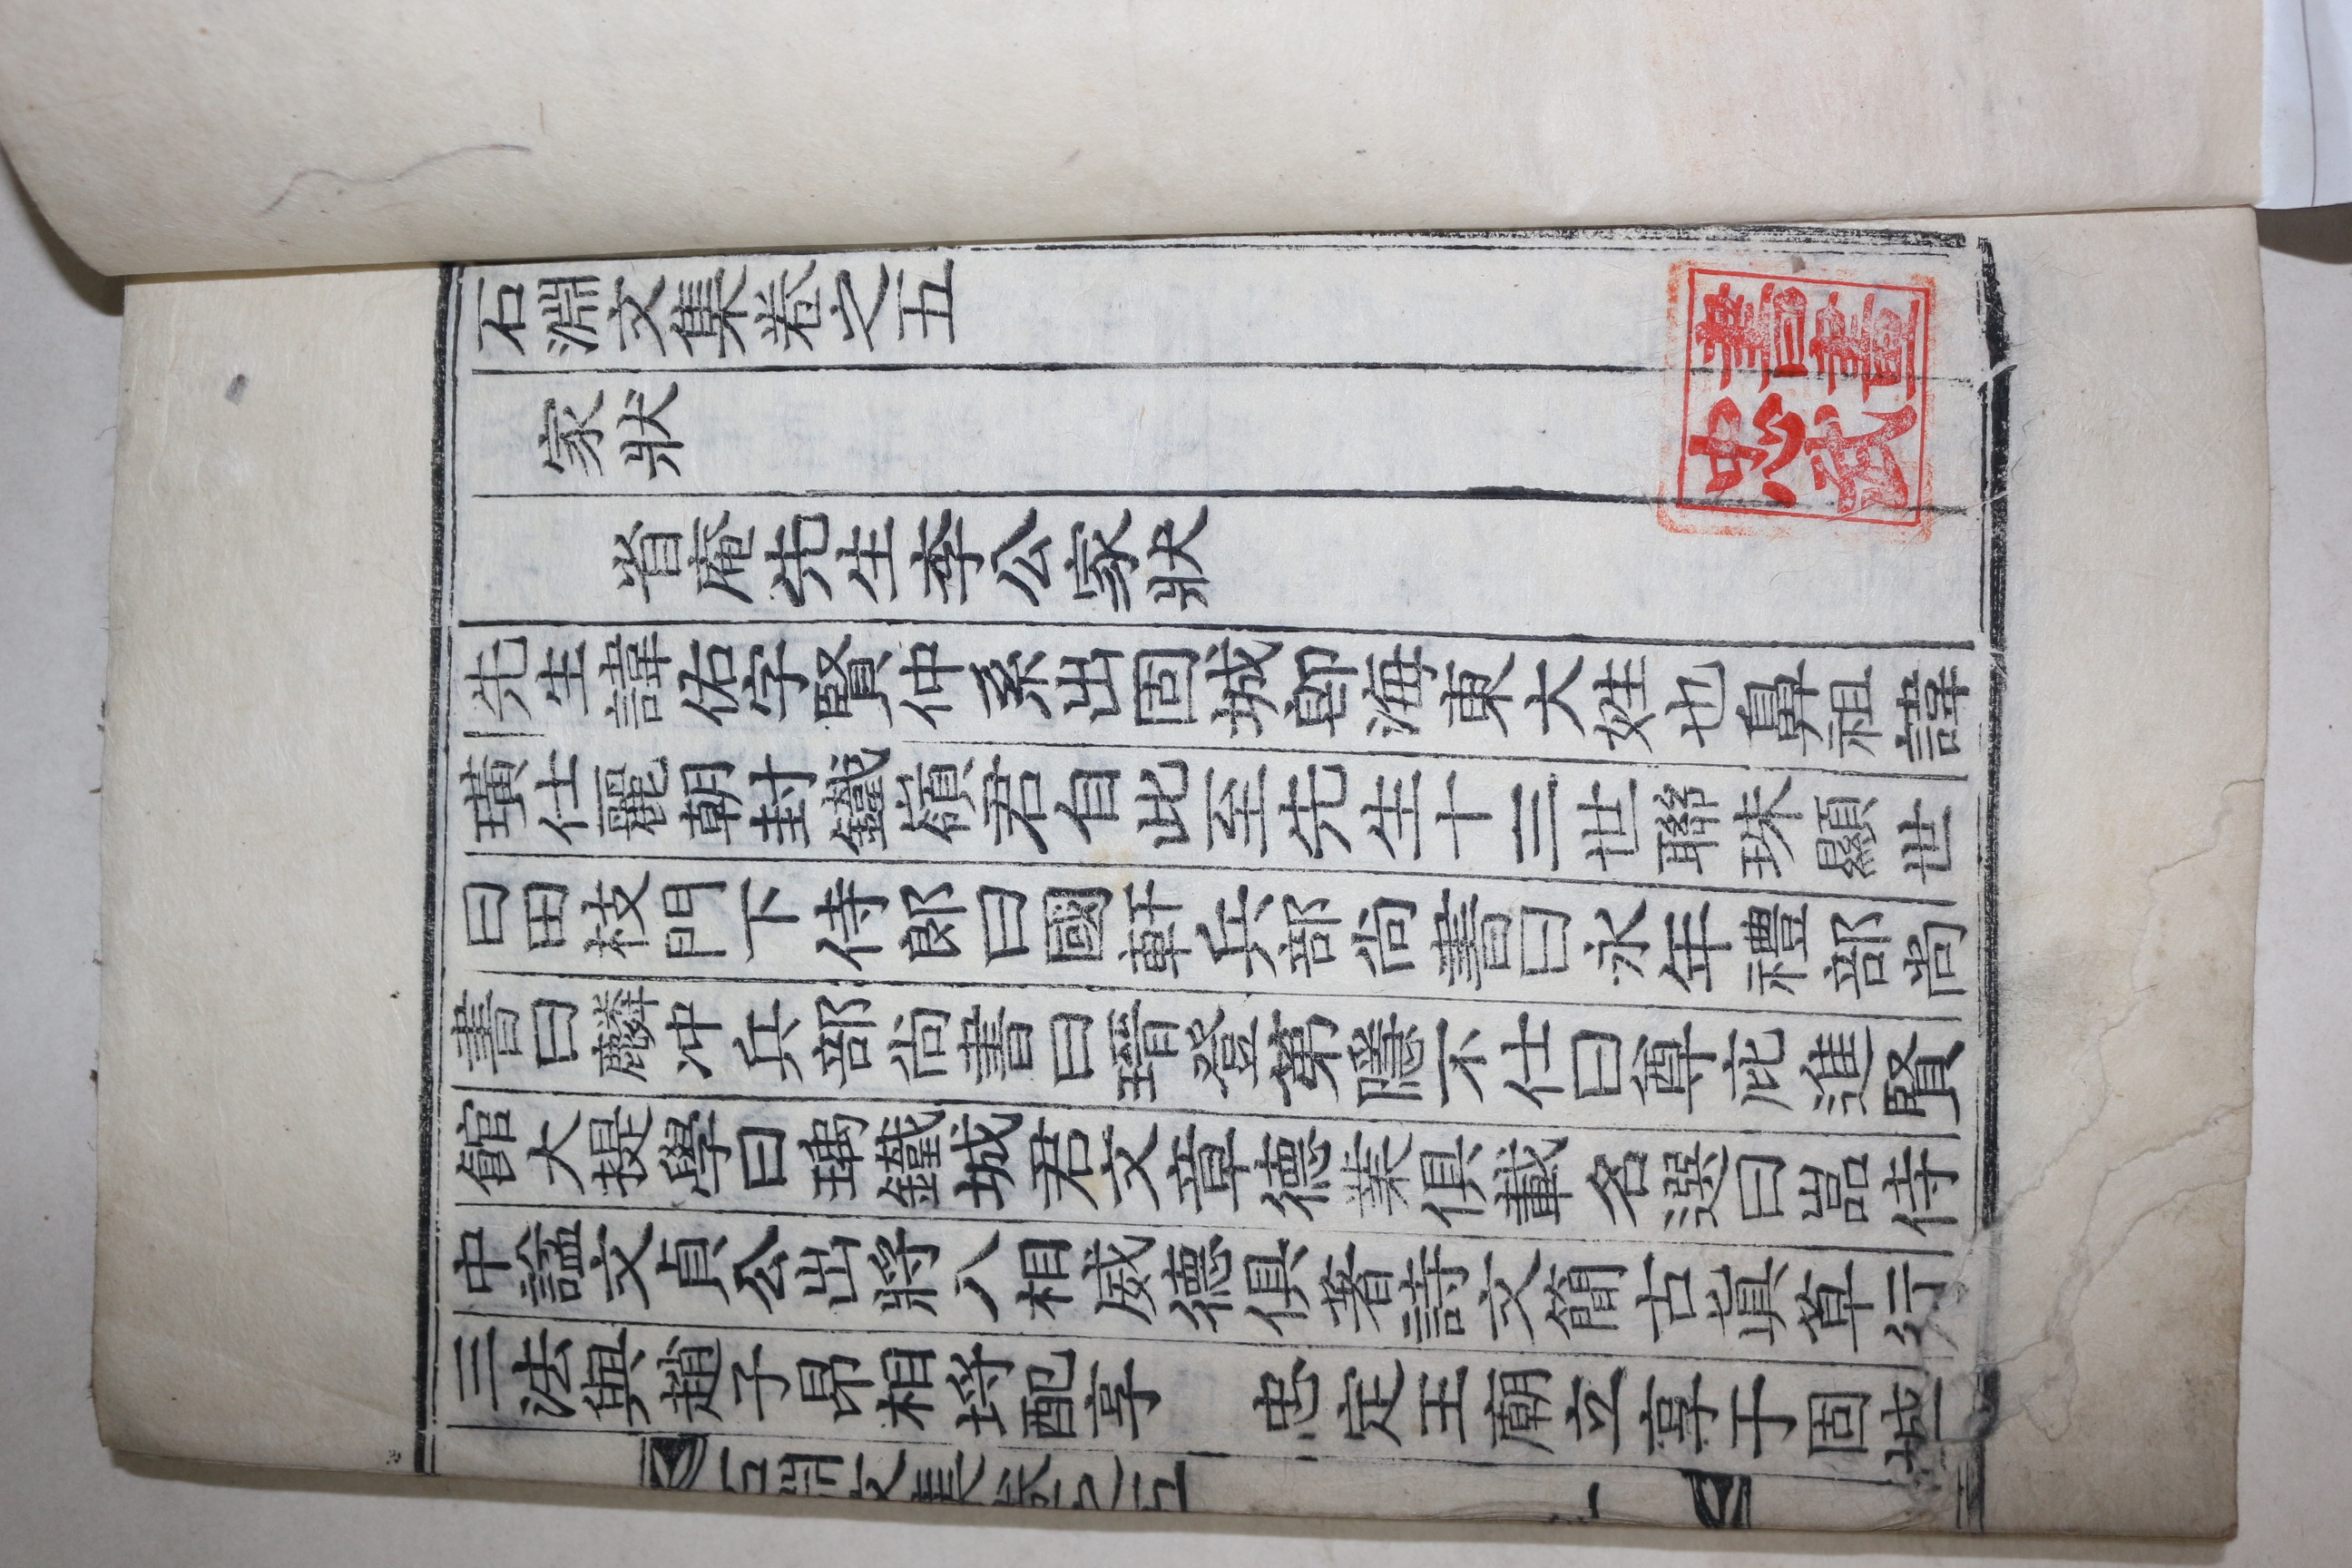 石淵文集卷之五
家狀
省庵先生李公家狀
先生諱佑字賢仲系出固城卽海東大姓也鼻祖諱
璜仕麗朝封鐵嶺君自此至先生十三世聯珠顯世
曰田枝門下侍郎曰國軒兵部尙書曰永年禮部尙
書曰麟冲兵部尙書曰瑨登第隱不仕曰尊庇進賢
館大提學曰瑀鐵城君文章德業俱載名選曰嵒侍
中諡文貞公出將入相威德俱著詩文簡古眞草行
三法與趙子昂相埒配享 忠定王廟立享于固城
石淵文集卷之五 一